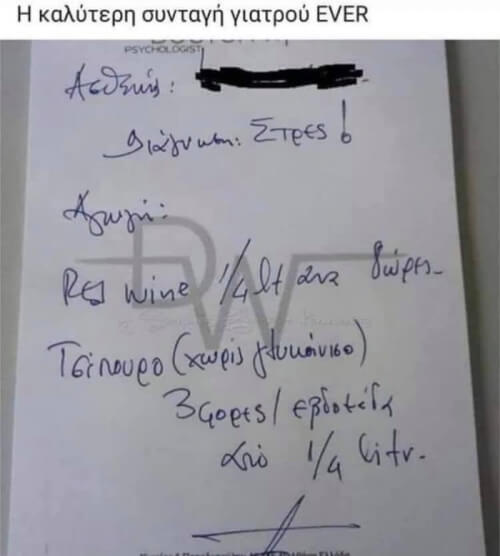 Η καλύτερη συνταγή γιατρού EVER
PSYCHOLOGIST
Ασθενής:
Διάγνωση: Στρες!
Αγωγή:
DW
Red wine 1/4 lt ανα 8ώρες-
Τσίπουρο (χωρίς γλυκάνισο)
3φορες/εβδομάδα
από 1/4 litr.